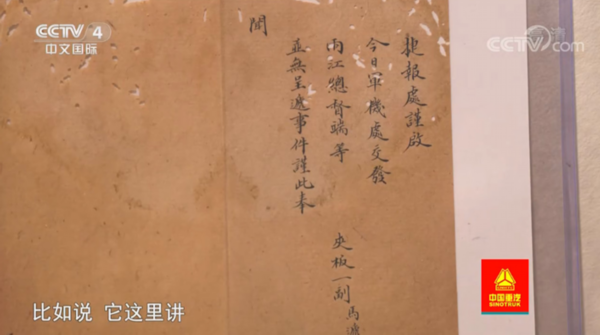 CCTV 4
中文国际
CCTV.com
捷報處謹啟
今日軍機處交發
兩江總督端等
夾板一副馬遞
並無呈遞事件謹此奉
聞
中国重汽
SINOTRUK
比如说 它这里讲